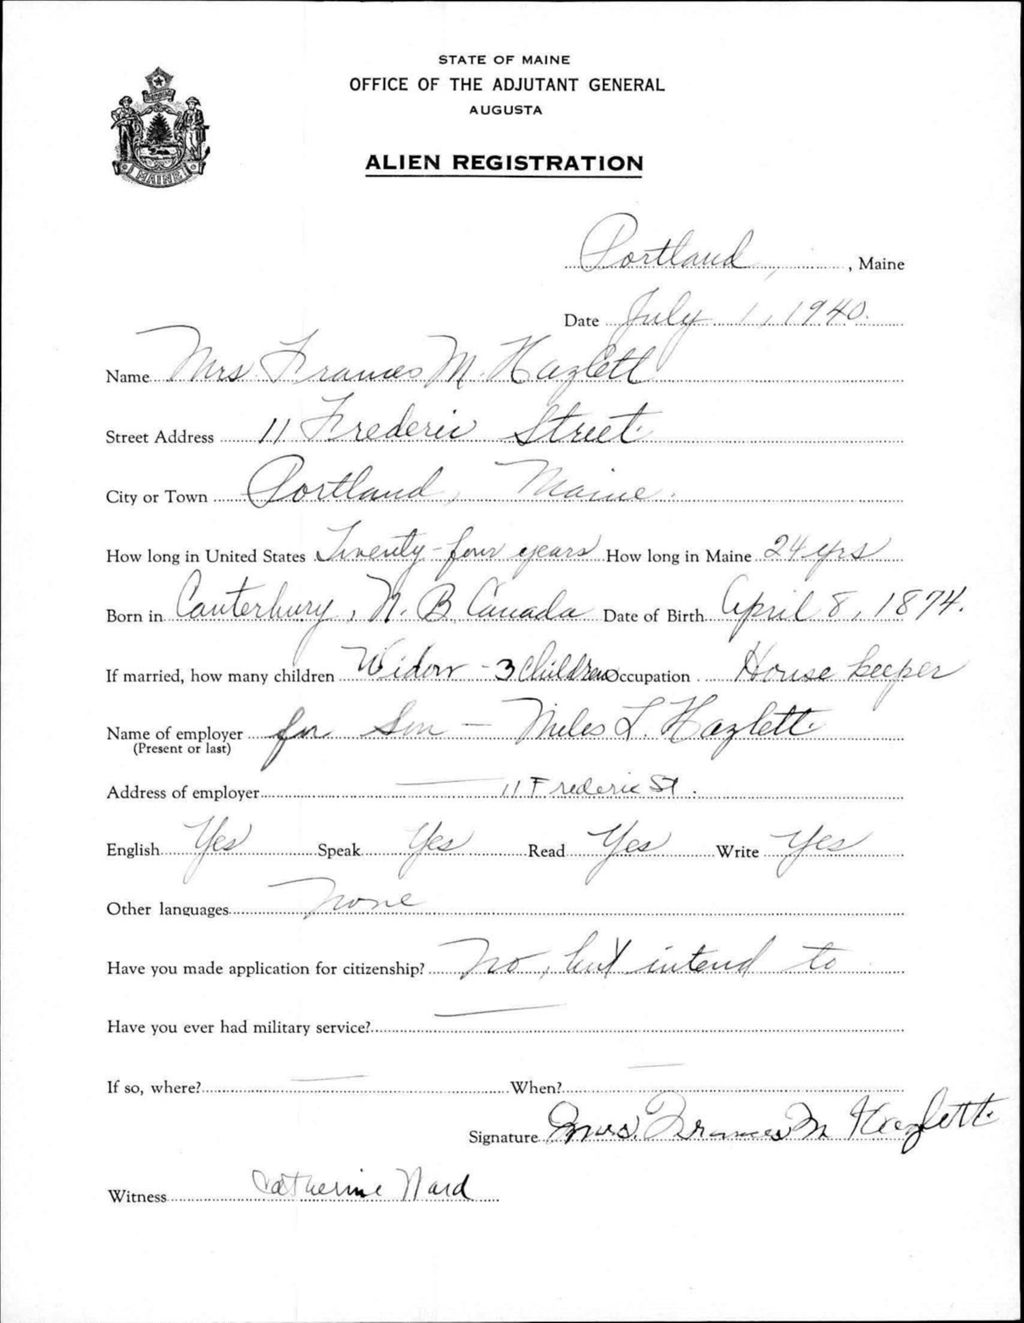 STATE OF MAINE
OFFICE OF THE ADJUTANT GENERAL
AUGUSTA
ALIEN REGISTRATION
MAINE
Portland, , Maine
Date July 1, 1940.
Name Mrs Frances M. Hazlett
Street Address 11 Frederic Street.
City or Town Portland, Maine.
How long in United States Twenty-four years How long in Maine 24 yrs
Born in Canterbury, N. B. Canada Date of Birth April 8, 1874.
If married, how many children Widow - 3 Children Occupation House keeper
Name of employer for Son - Miles L. Hazlett.
(Present or last)
Address of employer 11 Frederic St.
English Yes Speak Yes Read Yes Write Yes
Other languages none
Have you made application for citizenship? No, but intend to
Have you ever had military service? —
If so, where? — When? —
Signature Mrs. Frances M Hazlett.
Witness Catherine Ward